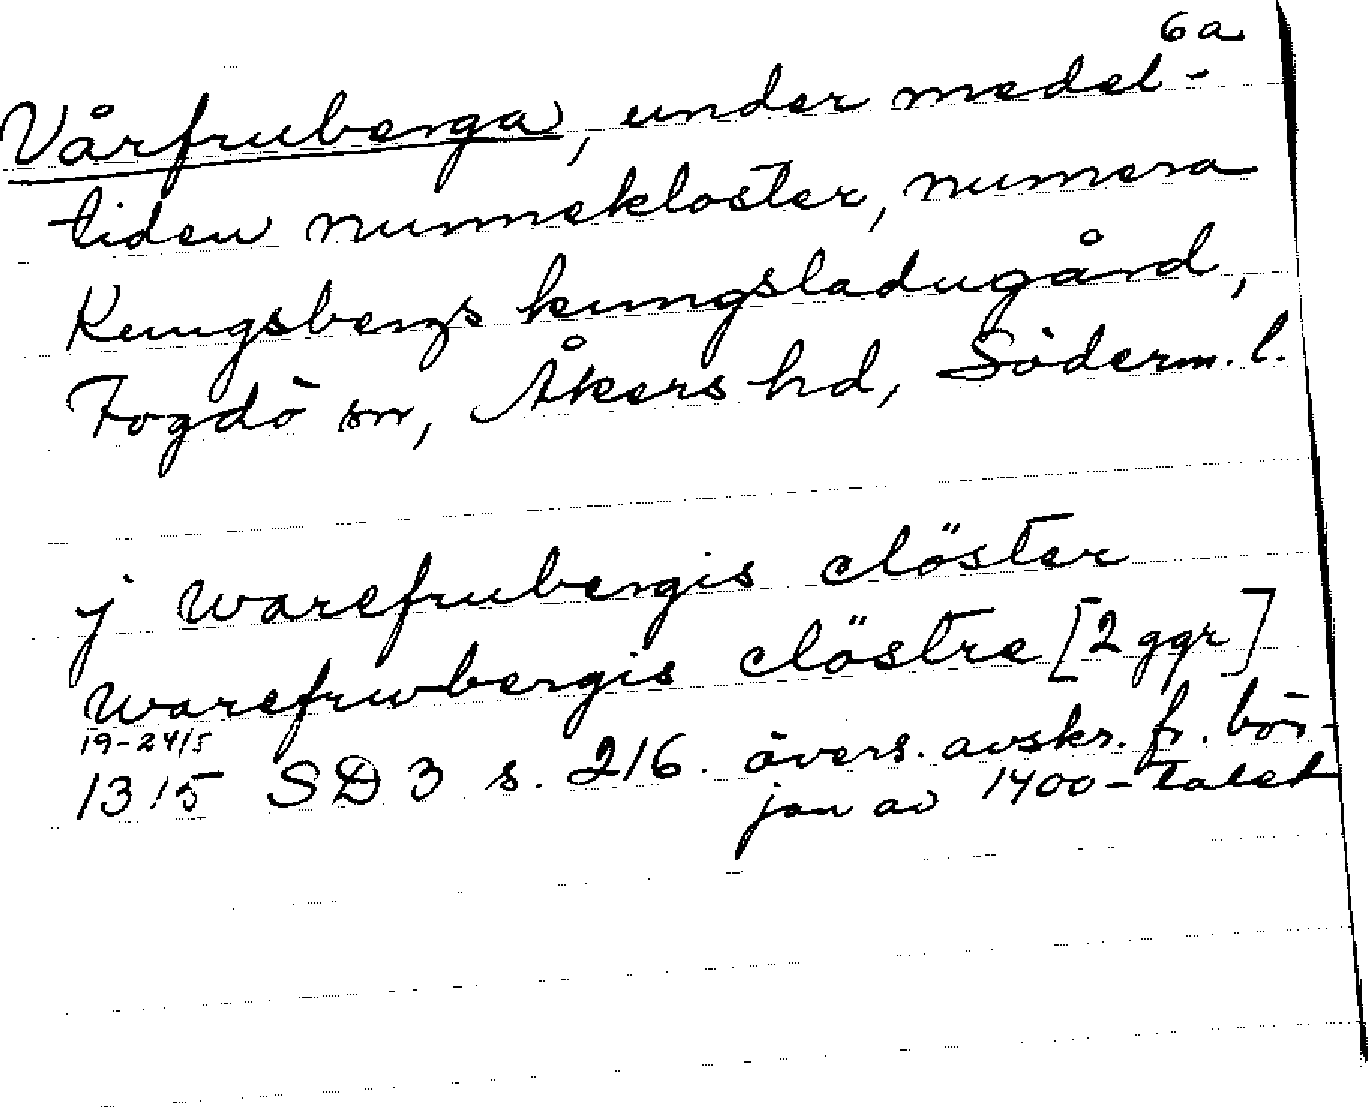 6a
Vårfruberga, under medel-
tiden nunnekloster, numera
Kungsbergs kungsladugård,
Fogdö sn, Åkers hd, Söderm. l.
j warefrubergis clöster
warefrwbergis clöstre [2 ggr]
19-24/5
1315 SD 3 s. 216. övers. avskr. fr. bör-
jan av 1400-talet